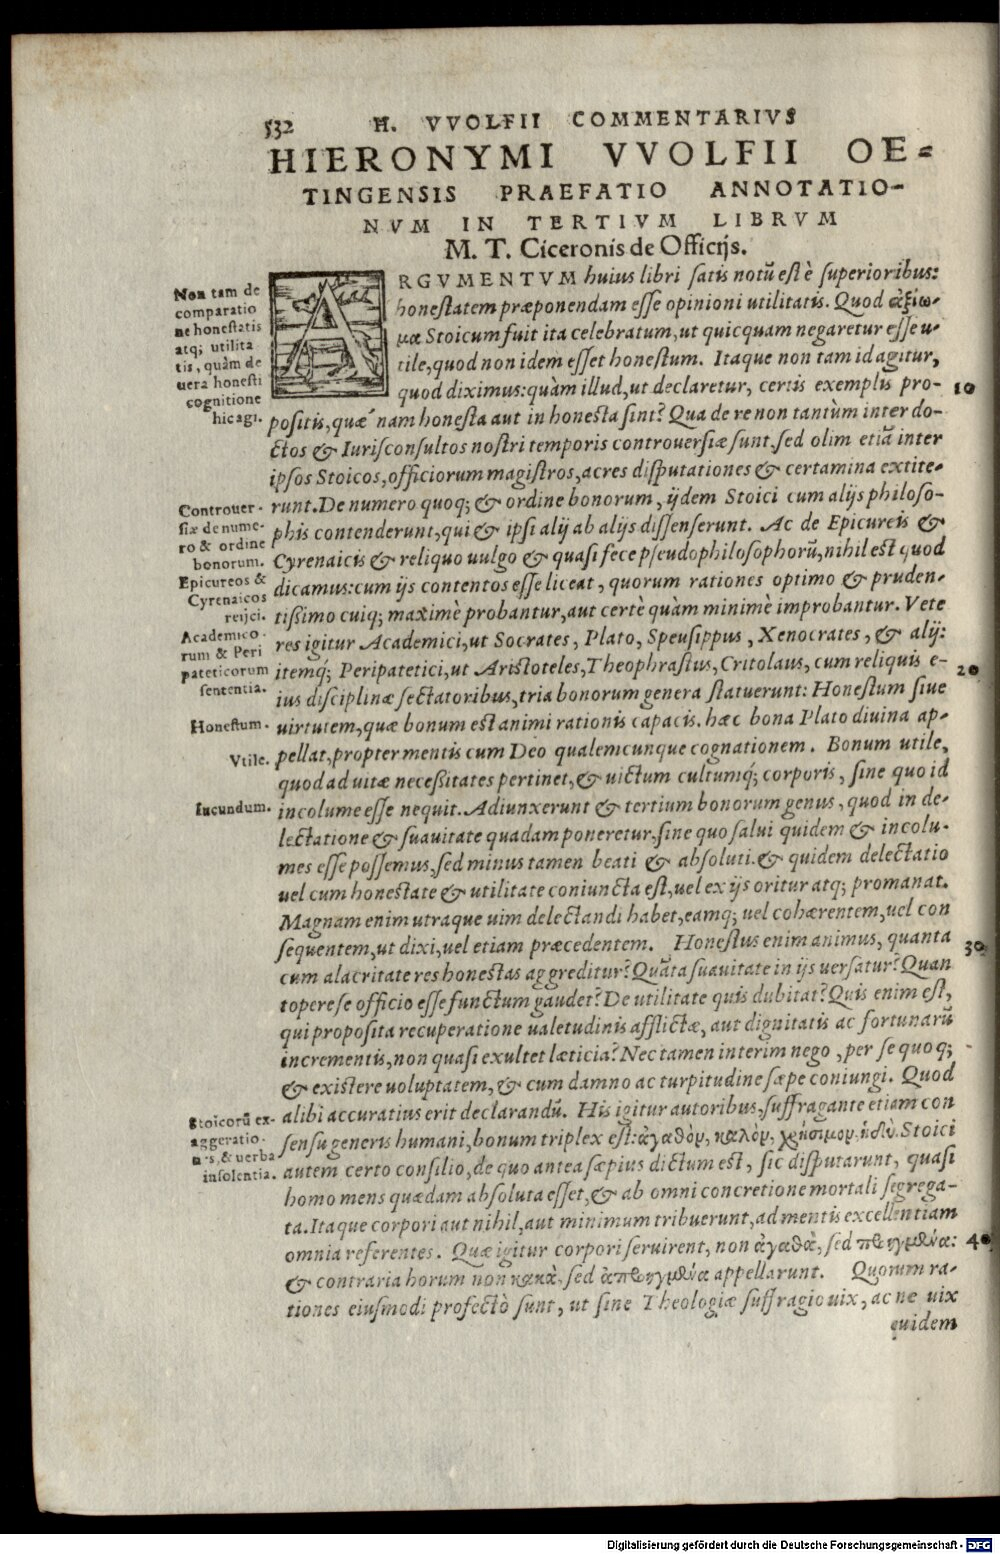 532 H. VVOLFII COMMENTARIVS
HIERONYMI VVOLFII OE=
TINGENSIS PRAEFATIO ANNOTATIO-
NVM IN TERTIVM LIBRVM
M. T. Ciceronis de Officijs.
Non tam de
comparatio
ne honestatis
atq; utilita
tis, quàm de
uera honesti
cognitione
hic agi.
ARGVMENTVM huius libri satis notũ est è superioribus:
honestatem præponendam esse opinioni utilitatis. Quod ἀξίω-
μα Stoicum fuit ita celebratum, ut quicquam negaretur esse u-
tile, quod non idem esset honestum. Itaque non tam id agitur,
quod diximus: quàm illud, ut declaretur, certis exemplis pro- 10
positis, quæ nam honesta aut in honesta sint? Qua de re non tantùm inter do-
ctos & Iurisconsultos nostri temporis controuersiæ sunt, sed olim etiã inter
ipsos Stoicos, officiorum magistros, acres disputationes & certamina extite-
Controuer-
siæ de nume-
ro & ordine
bonorum.
runt. De numero quoq; & ordine bonorum, ijdem Stoici cum alijs philoso-
phis contenderunt, qui & ipsi alij ab alijs dissenserunt. Ac de Epicureis &
Epicureos &
Cyrenaicos
reijci.
Cyrenaicis & reliquo uulgo & quasi fece pseudophilosophorũ, nihil est quod
dicamus: cum ijs contentos esse liceat, quorum rationes optimo & pruden-
tißimo cuiq; maximè probantur, aut certè quàm minimè improbantur. Vete
Academico-
rum & Peri
pateticorum
sententia.
res igitur Academici, ut Socrates, Plato, Speusippus, Xenocrates, & alij:
itemq́; Peripatetici, ut Aristoteles, Theophrastus, Critolaus, cum reliquis e- 20
ius disciplinæ sectatoribus, tria bonorum genera statuerunt: Honestum siue
Honestum.
uirtutem, quæ bonum est animi rationis capacis. hæc bona Plato diuina ap-
Vtile.
pellat, propter mentis cum Deo qualemcunque cognationem. Bonum utile,
quod ad uitæ neceßitates pertinet, & uictum cultumq́; corporis, sine quo id
Iucundum.
incolume esse nequit. Adiunxerunt & tertium bonorum genus, quod in de-
lectatione & suauitate quadam poneretur, sine quo salui quidem & incolu-
mes esse possemus, sed minus tamen beati & absoluti. & quidem delectatio
uel cum honestate & utilitate coniuncta est, uel ex ijs oritur atq; promanat.
Magnam enim utraque uim delectandi habet, eamq; uel cohærentem, uel con
sequentem, ut dixi, uel etiam præcedentem. Honestus enim animus, quanta 30
cum alacritate res honestas aggreditur? Quãta suauitate in ijs uersatur? Quan
topere se officio esse functum gaudet? De utilitate quis dubitat? Quis enim est,
qui proposita recuperatione ualetudinis afflictæ, aut dignitatis ac fortunarũ
incrementis, non quasi exultet læticia? Nec tamen interim nego, per se quoq;
& existere uoluptatem, & cum damno ac turpitudine sæpe coniungi. Quod
Stoicorũ ex-
aggeratio-
nes, & uerba
insolentia.
alibi accuratius erit declarandũ. His igitur autoribus, suffragante etiam con
sensu generis humani, bonum triplex est: ἀγαθὸν, καλὸν, χρήσιμον, ἡδύ. Stoici
autem certo consilio, de quo antea sæpius dictum est, sic disputarunt, quasi
homo mens quædam absoluta esset, & ab omni concretione mortali segrega-
ta. Itaque corpori aut nihil, aut minimum tribuerunt, ad mentis excellentiam
omnia referentes. Quæ igitur corpori seruirent, non ἀγαθὰ, sed προηγμένα: 40
& contraria horum non κακὰ, sed ἀποπροηγμένα appellarunt. Quorum ra-
tiones eiusmodi profectò sunt, ut sine Theologiæ suffragio uix, ac ne uix
quidem
Digitalisierung gefördert durch die Deutsche Forschungsgemeinschaft - DFG